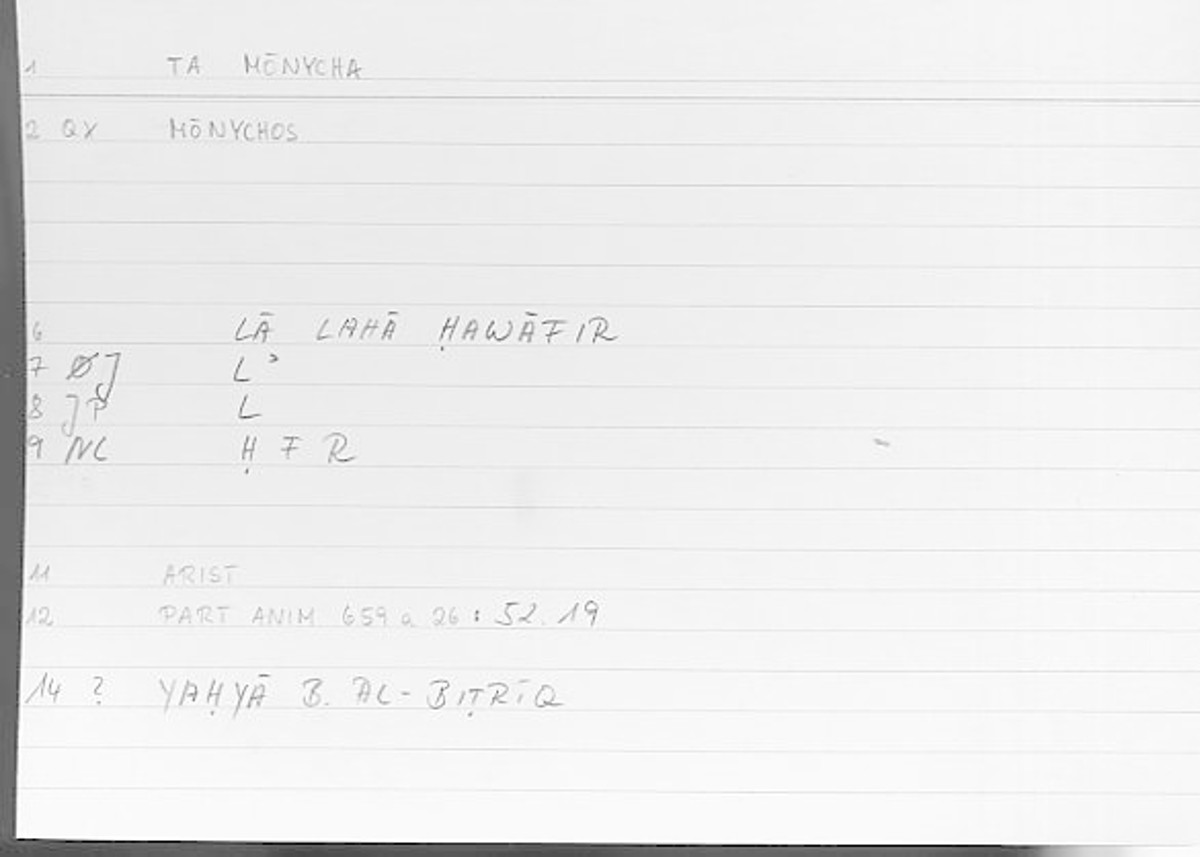 1 TA MŌNYCHA
2 QX MŌNYCHOS
6 LĀ LAHĀ ḤAWĀFIR
7 ØJ Lʾ
8 JP L
9 NC Ḥ F R
11 ARIST
12 PART ANIM 659 a 26 : 52.19
14 ? YAḤYĀ B. AL-BIṬRĪQ